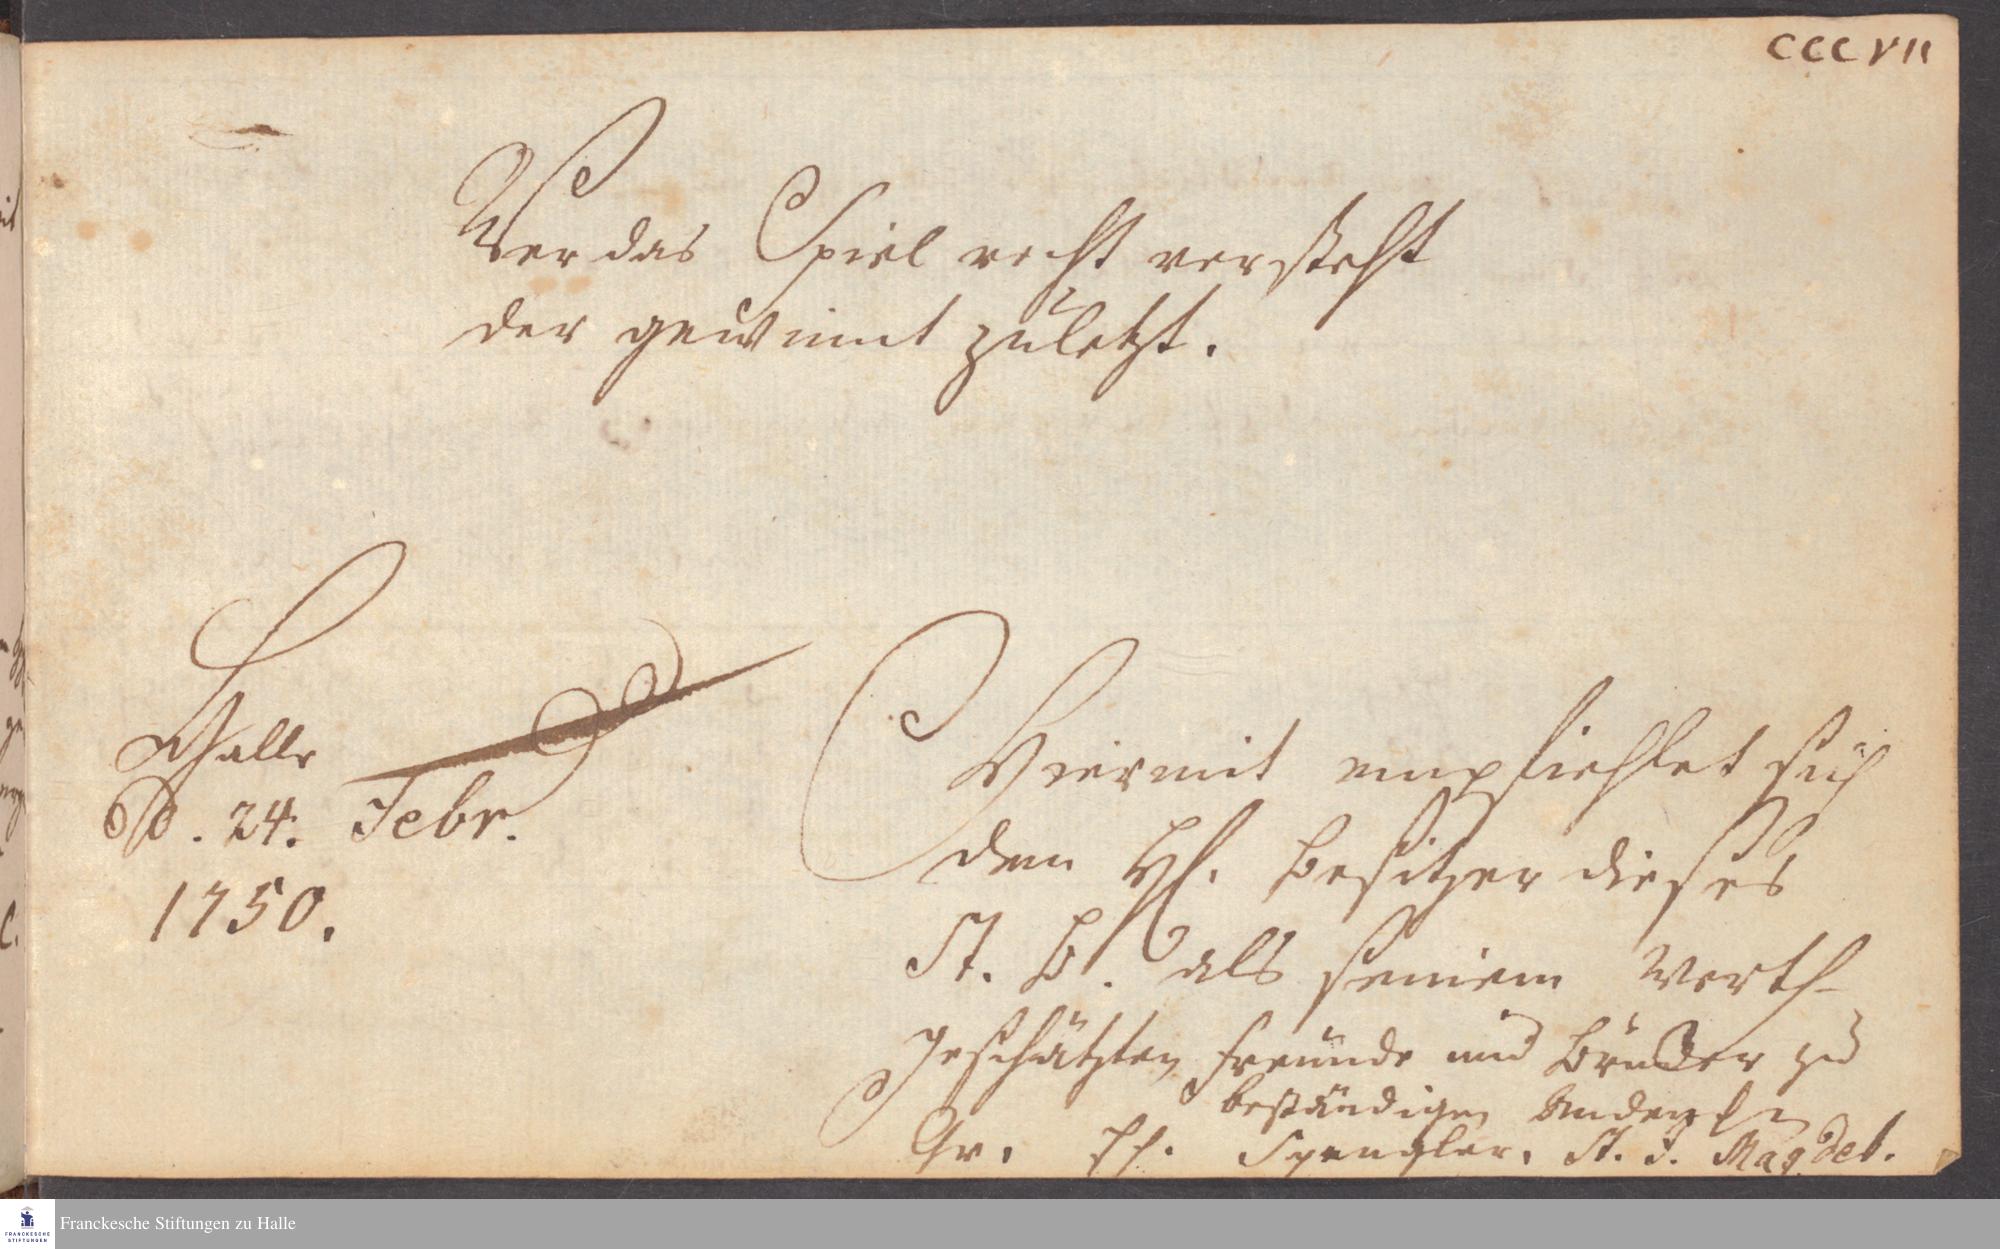 CCCVII
Wer das Spiel recht versteht
der gewinnt zuletzt.
Halle
d. 24. Febr.
1750.
Hiermit empfiehlet sich
dem H. Besitzer dieses
St. B. als seinem Werth-
geschätzten Freunde und Bruder zu
beständigem Andencken
Spengler. St. J. Magdeb.
Franckesche Stiftungen zu Halle
FRANCKESCHE
STIFTUNGEN